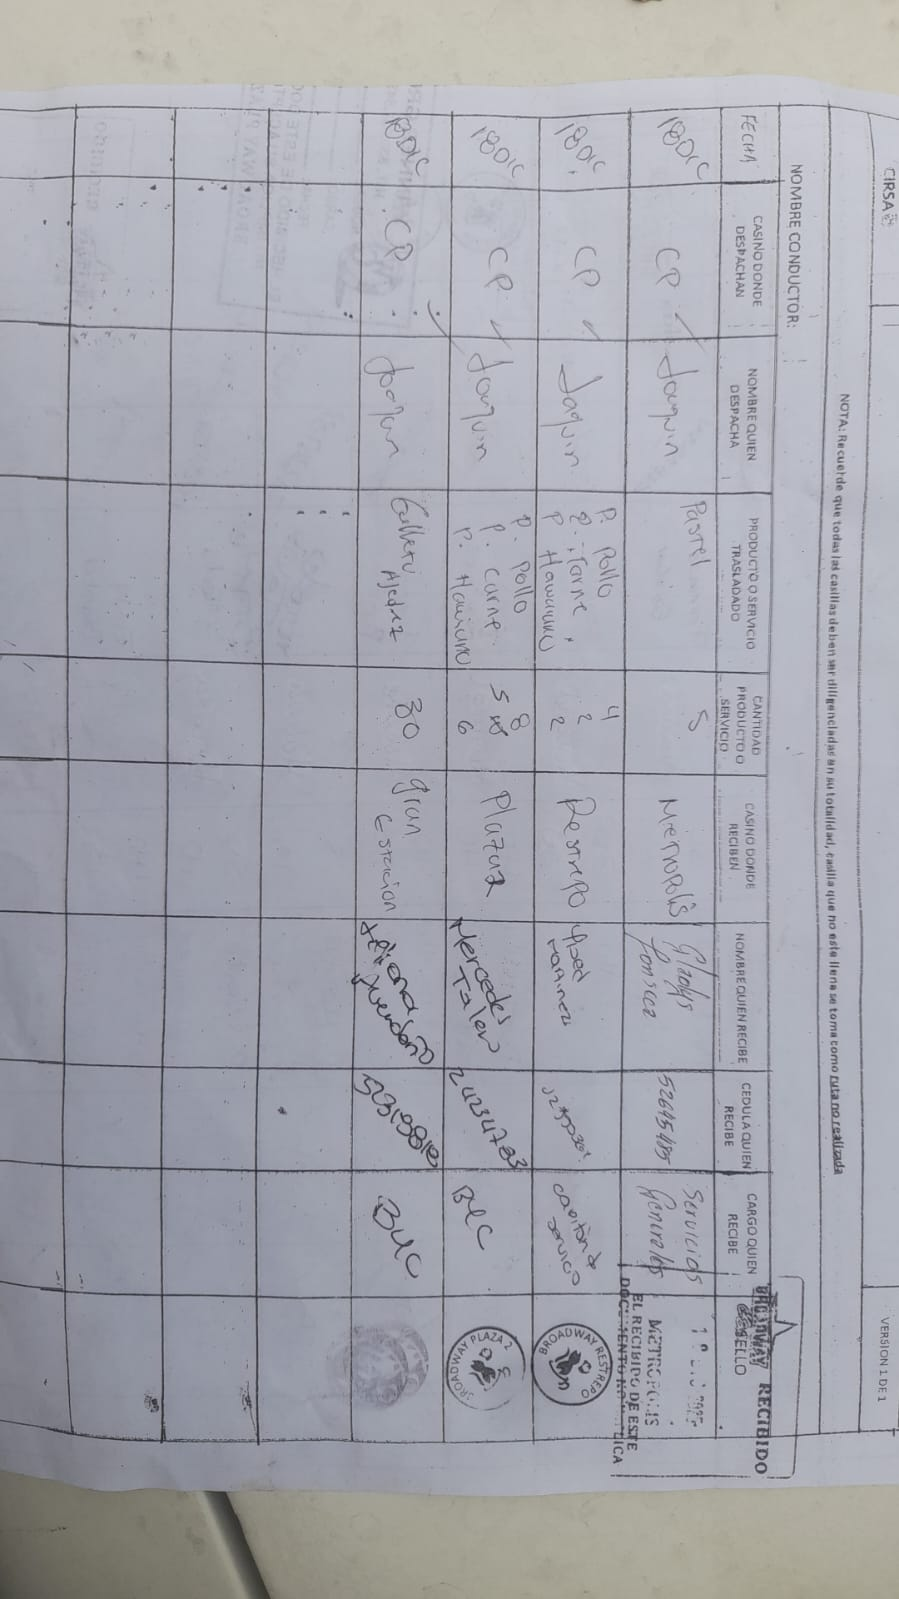 CIRSA
VERSION 1 DE 1
NOTA: Recuerde que todas las casillas deben ser diligenciadas en su totalidad, casilla que no este llena se toma como ruta no realizada
NOMBRE CONDUCTOR:
FECHA
CASINO DONDE DESPACHAN
NOMBRE QUIEN DESPACHA
PRODUCTO O SERVICIO TRASLADADO
CANTIDAD PRODUCTO O SERVICIO
CASINO DONDE RECIBEN
NOMBRE QUIEN RECIBE
CEDULA QUIEN RECIBE
CARGO QUIEN RECIBE
SELLO
18DIC CP Joaquin Pastel 5 Metropolis Gladys Fonseca 52645485 Servicios Generales
BROADWAY RECIBIDO
METROPOLIS
EL RECIBIDO DE ESTE
18DIC CP Joaquin
P. Pollo 4
P. Carne 2
P. Hawaiano 2
Restrepo
BROADWAY RESTREPO
18DIC CP Joaquin
P. Pollo 8
P. Carne 5
P. Hawiano 6
Plaza 2
Mercedes
BROADWAY PLAZA 2
18DIC CP Joaquin
Ajedrez
30
Gran Estacion